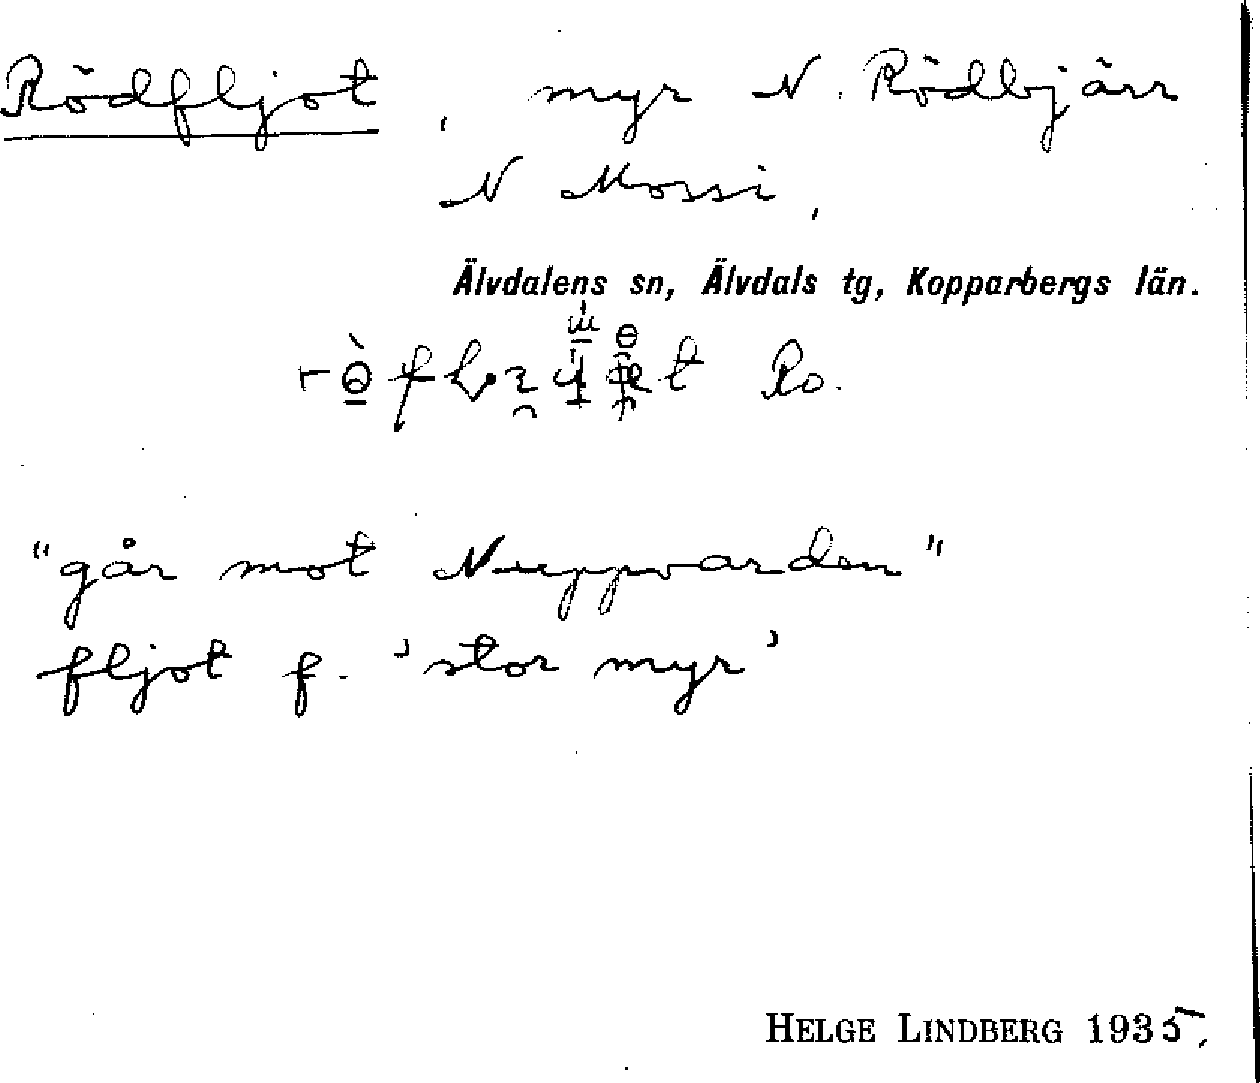 Rödfljot, myr N. Rödbjärr
N Mossi,
Älvdalens sn, Älvdals tg, Kopparbergs län.
Ro.
"går mot Nuppvarden"
fljot f. 'stor myr'
HELGE LINDBERG 1935,